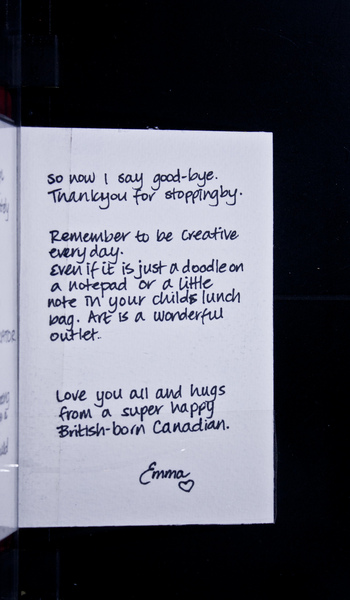 So now I say good-bye.
Thankyou for stopping by.
Remember to be creative
every day.
Even if it is just a doodle on
a notepad or a little
note in your childs lunch
bag. Art is a wonderful
outlet.
Love you all and hugs
from a super happy
British-born Canadian.
Emma